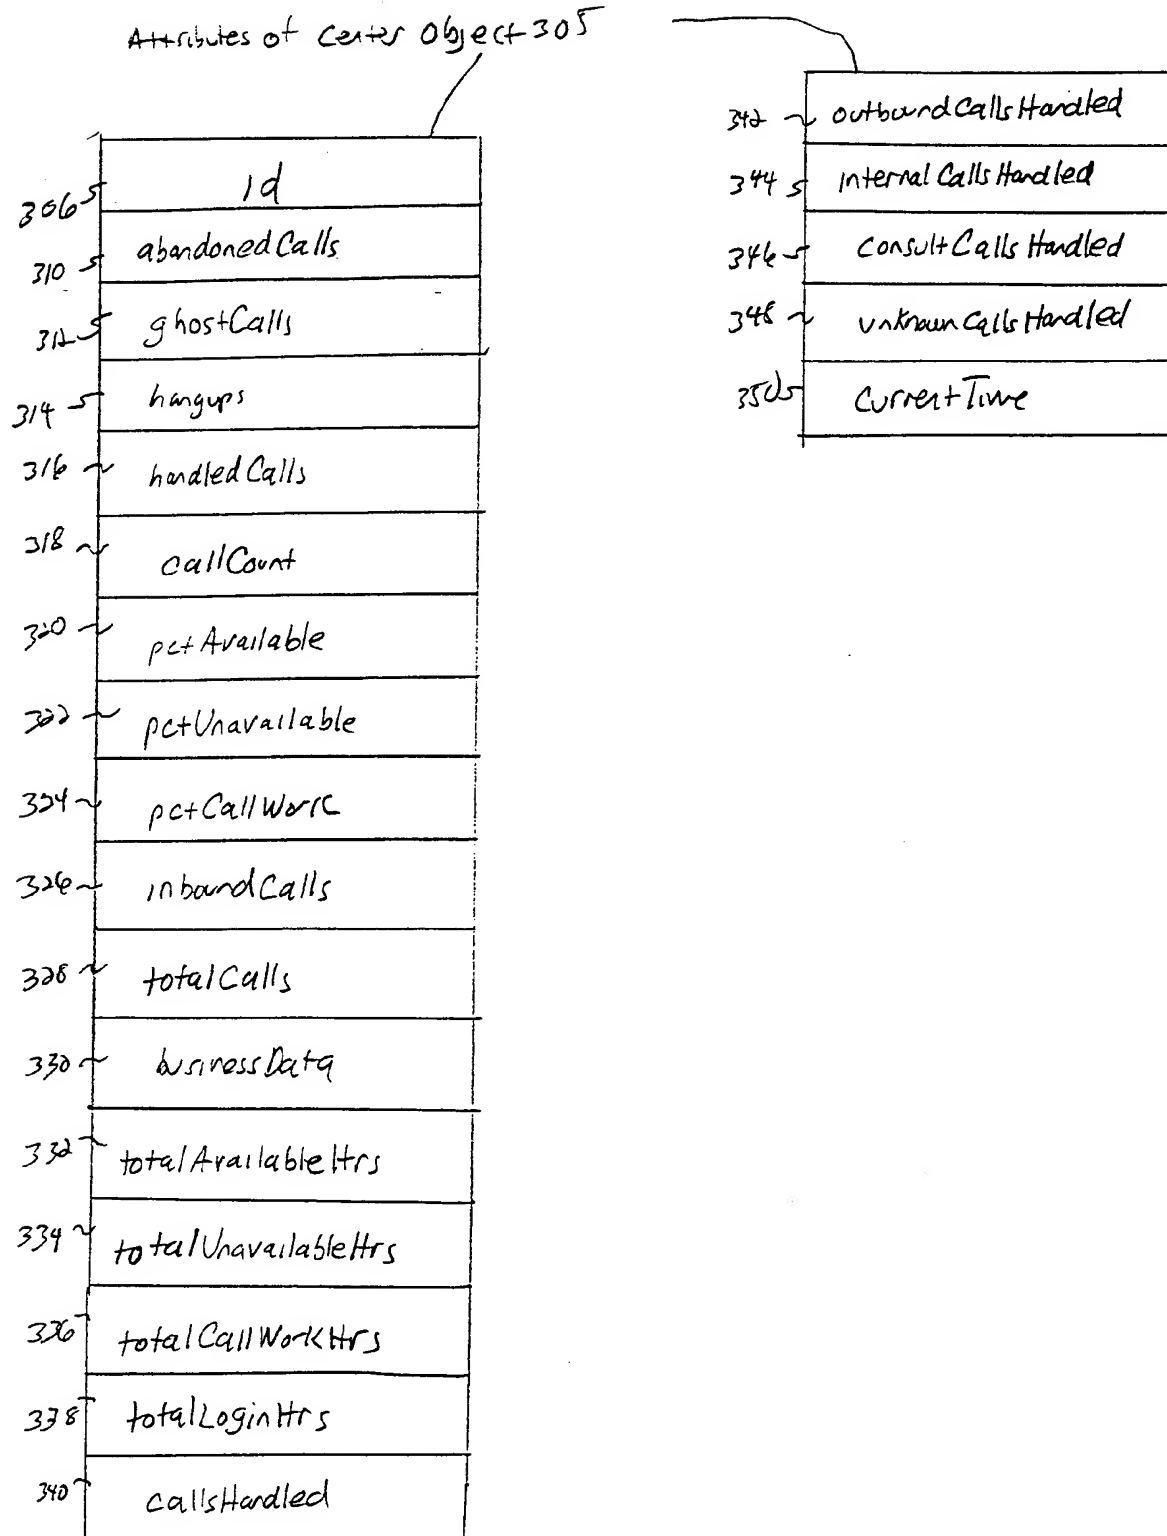 Attributes of Center Object 305
306 id
310 abandonedCalls
312 ghostCalls
314 hangups
316 handledCalls
318 callCount
320 pctAvailable
322 pctUnavailable
324 pctCallWork
326 inboundCalls
328 totalCalls
330 businessData
332 totalAvailableHrs
334 totalUnavailableHrs
336 totalCallWorkHrs
338 totalLoginHrs
340 callsHandled
342 outboundCallsHandled
344 internalCallsHandled
346 consultCallsHandled
348 unknownCallsHandled
350 currentTime